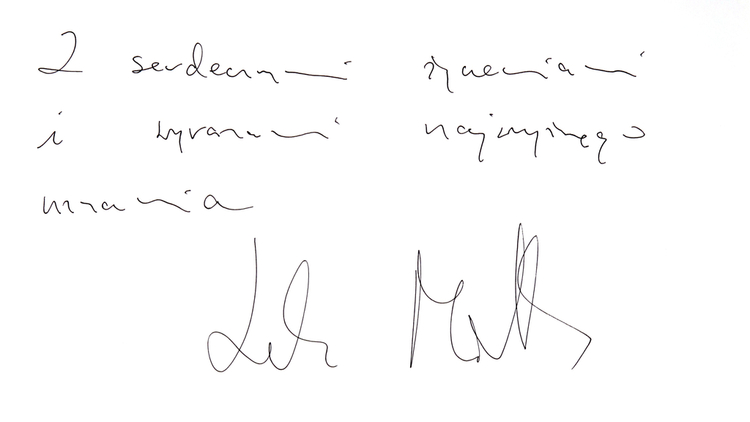 Z serdecznymi życzeniami
i wyrazami najwyższego
uznania